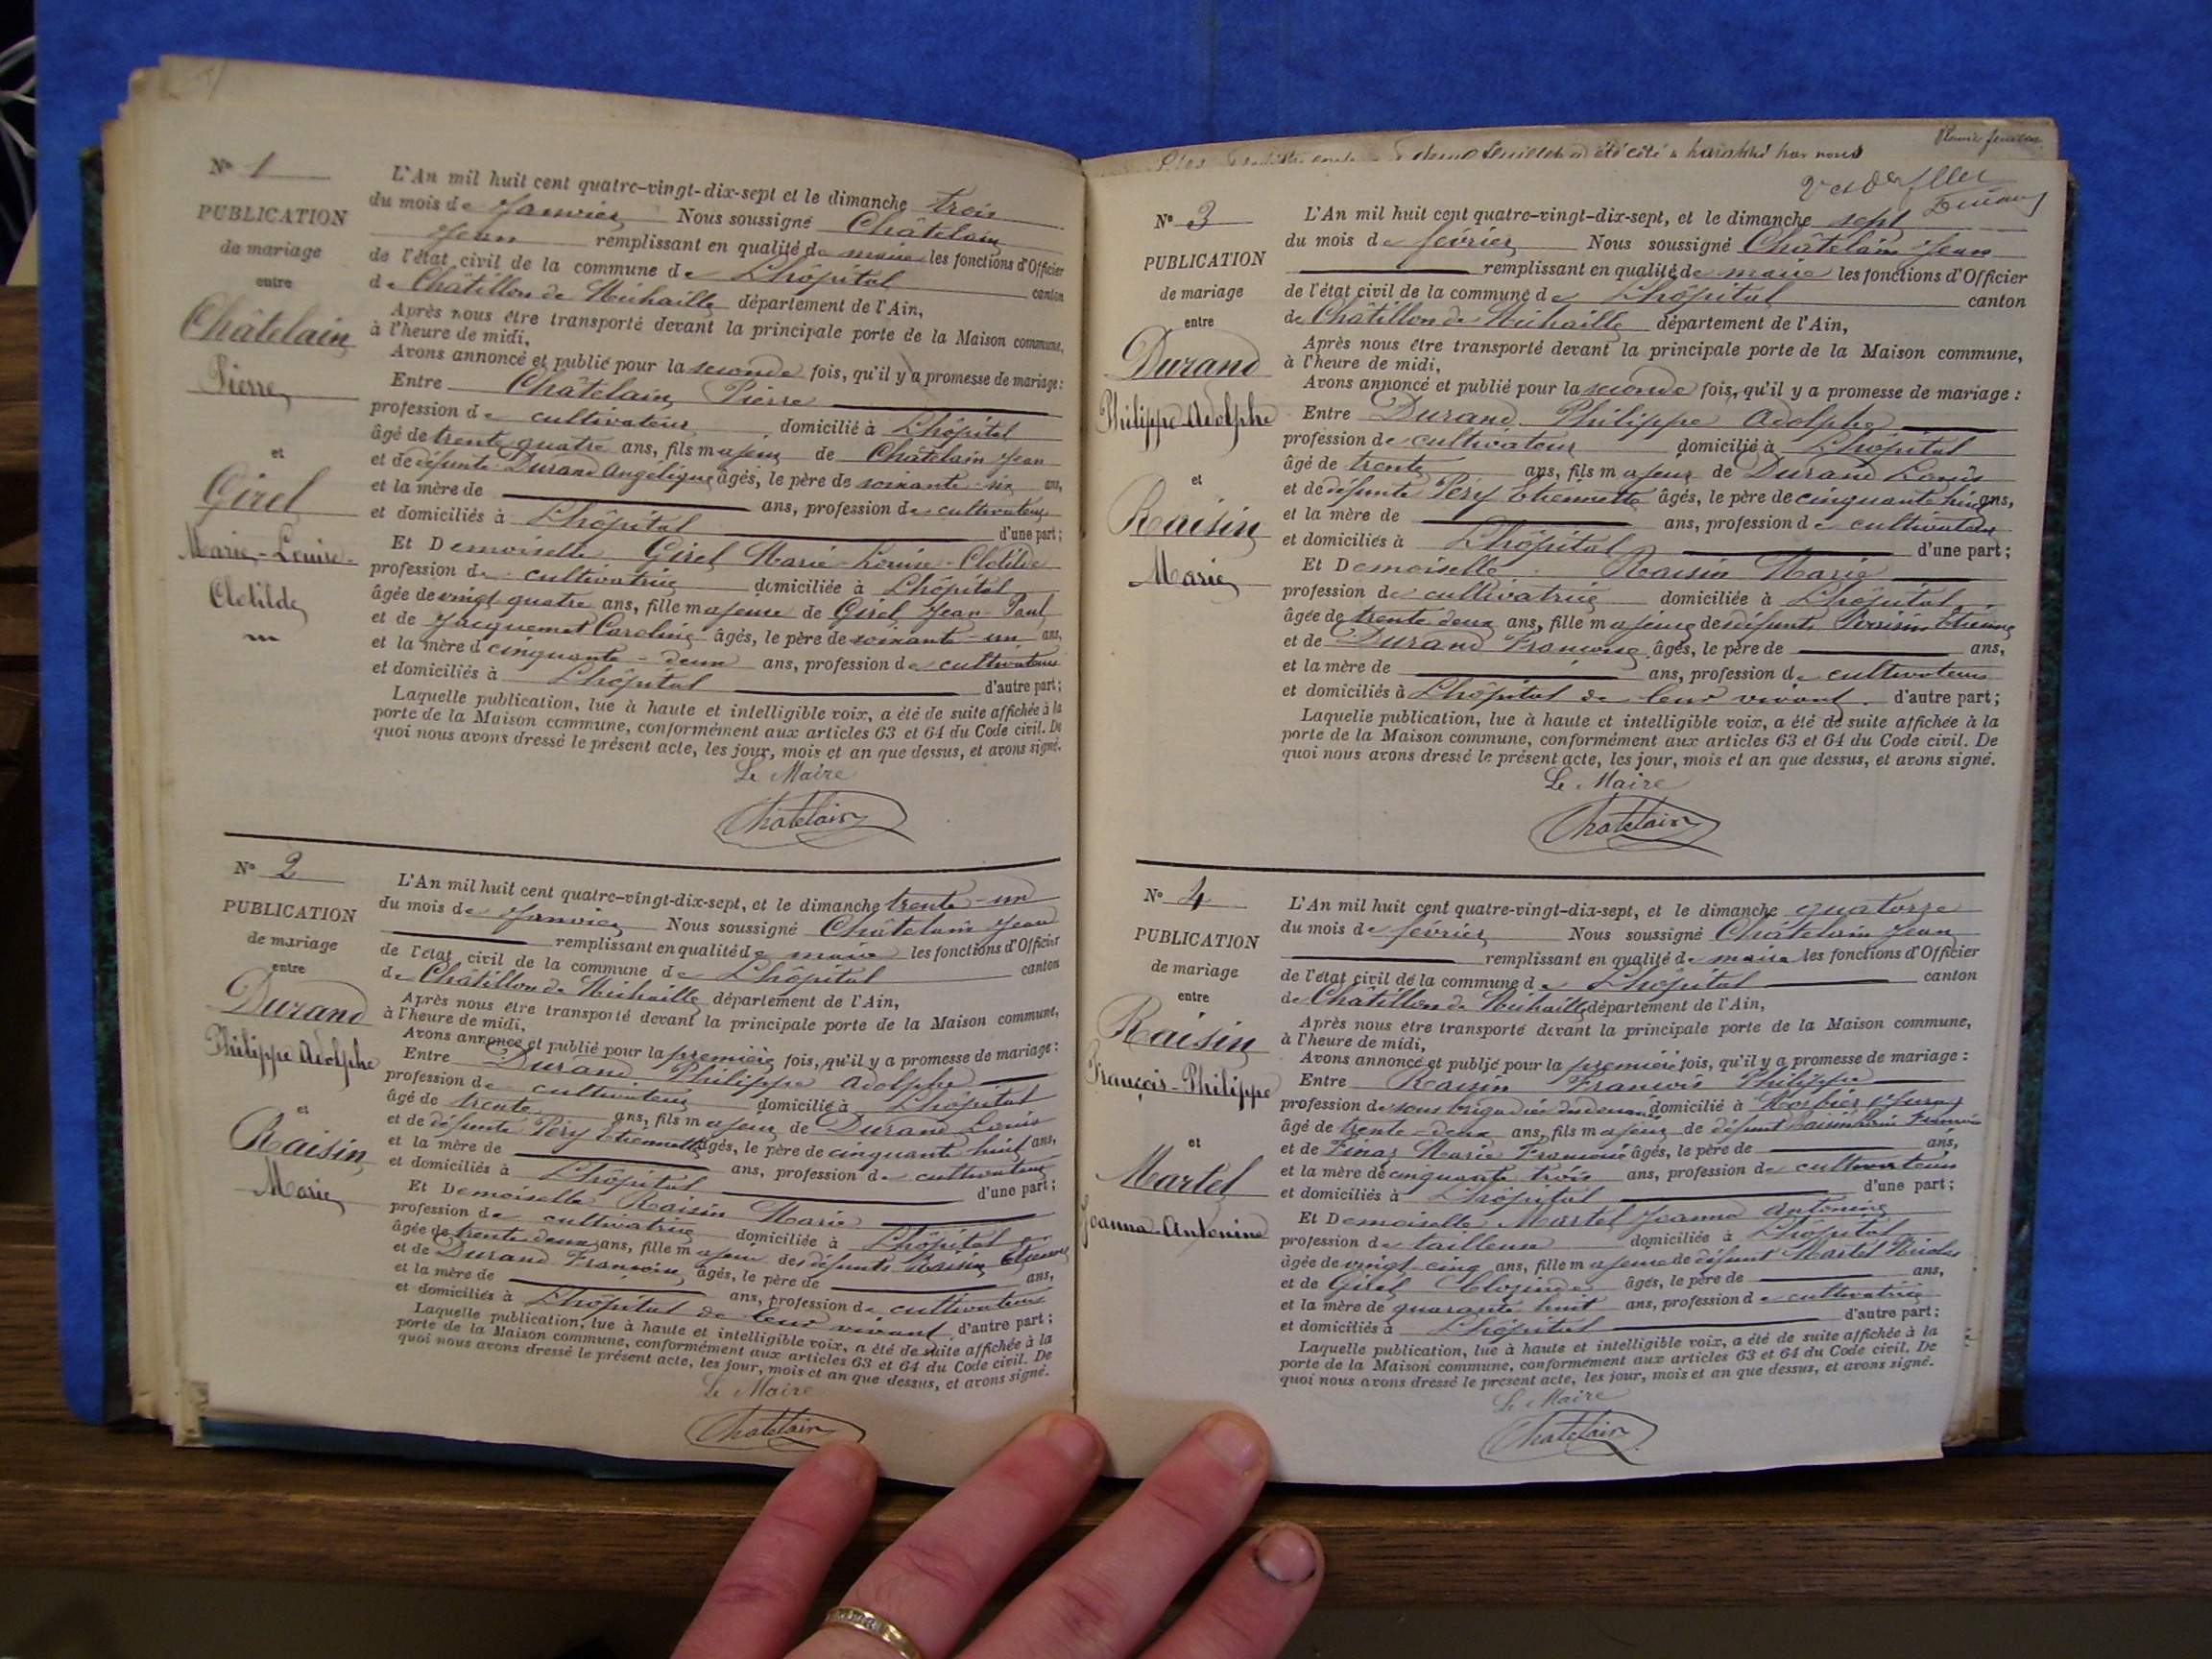 N° 1
PUBLICATION
de mariage
entre
Châtelain
Pierre
et
Girel
Marie-Louise-
Clotilde
L'An mil huit cent quatre-vingt-dix-sept et le dimanche trois
du mois de Janvier Nous soussigné Châtelain
Jean remplissant en qualité de maire les fonctions d'Officier
de l'état civil de la commune de Lhôpital canton
de Châtillon de Michaille département de l'Ain,
Après nous être transporté devant la principale porte de la Maison commune,
à l'heure de midi,
Avons annoncé et publié pour la seconde fois, qu'il y a promesse de mariage :
Entre Châtelain Pierre
profession de cultivateur domicilié à Lhôpital
âgé de trente quatre ans, fils majeur de Châtelain Jean
et de défunte Durand Angélique âgés, le père de soixante six ans,
et la mère de ans, profession de cultivateur
et domiciliés à Lhôpital d'une part ;
Et Demoiselle Girel Marie-Louise-Clotilde
profession de cultivatrice domiciliée à Lhôpital
âgée de vingt quatre ans, fille majeure de Girel Jean-Paul
et de Jacquemet Caroline âgés, le père de soixante-un ans,
et la mère d cinquante-deux ans, profession de cultivateurs
et domiciliés à Lhôpital d'autre part ;
Laquelle publication, lue à haute et intelligible voix, a été de suite affichée à la
porte de la Maison commune, conformément aux articles 63 et 64 du Code civil. De
quoi nous avons dressé le présent acte, les jour, mois et an que dessus, et avons signé.
Le Maire
Chatelain
N° 2
PUBLICATION
de mariage
entre
Durand
Philippe Adolphe
et
Raisin
Marie
L'An mil huit cent quatre-vingt-dix-sept, et le dimanche trente-un
du mois de Janvier Nous soussigné Châtelain Jean
remplissant en qualité de maire les fonctions d'Officier
de l'état civil de la commune de Lhôpital canton
de Châtillon de Michaille département de l'Ain,
Après nous être transporté devant la principale porte de la Maison commune,
à l'heure de midi,
Avons annoncé et publié pour la première fois, qu'il y a promesse de mariage :
Entre Durand Philippe Adolphe
profession de cultivateur domicilié à Lhôpital
âgé de trente ans, fils majeur de Durand Louis
et de défunte Péry Etiennette âgés, le père de cinquante huit ans,
et la mère de ans, profession de cultivateur
et domiciliés à Lhôpital d'une part ;
Et Demoiselle Raisin Marie
profession de cultivatrice domiciliée à Lhôpital
âgée de trente deux ans, fille majeure des défunts Raisin Etienne
et de Durand Françoise âgés, le père de ans,
et la mère de ans, profession de cultivateurs
et domiciliés à Lhôpital de leur vivant d'autre part ;
Laquelle publication, lue à haute et intelligible voix, a été de suite affichée à la
porte de la Maison commune, conformément aux articles 63 et 64 du Code civil. De
quoi nous avons dressé le présent acte, les jour, mois et an que dessus, et avons signé.
Le Maire
Chatelain
été côté & paraphé par nous
N° 3
PUBLICATION
de mariage
entre
Durand
Philippe-Adolphe
et
Raisin
Marie
L'An mil huit cent quatre-vingt-dix-sept, et le dimanche sept
du mois de février Nous soussigné Châtelain Jean
remplissant en qualité de maire les fonctions d'Officier
de l'état civil de la commune de Lhôpital canton
de Châtillon de Michaille département de l'Ain,
Après nous être transporté devant la principale porte de la Maison commune,
à l'heure de midi,
Avons annoncé et publié pour la seconde fois, qu'il y a promesse de mariage :
Entre Durand Philippe Adolphe
profession de cultivateur domicilié à Lhôpital
âgé de trente ans, fils majeur de Durand Louis
et de défunte Péry Etiennette âgés, le père de cinquante huit ans,
et la mère de ans, profession de cultivateur
et domiciliés à Lhôpital d'une part ;
Et Demoiselle Raisin Marie
profession de cultivatrice domiciliée à Lhôpital
âgée de trente deux ans, fille majeure des défunts Etienne
et de Durand Françoise âgés, le père de ans,
et la mère de ans, profession de cultivateurs
et domiciliés à Lhôpital de leur vivant. d'autre part ;
Laquelle publication, lue à haute et intelligible voix, a été de suite affichée à la
porte de la Maison commune, conformément aux articles 63 et 64 du Code civil. De
quoi nous avons dressé le présent acte, les jour, mois et an que dessus, et avons signé.
Le Maire
Chatelain
N° 4
PUBLICATION
de mariage
entre
Raisin
François-Philippe
et
Martel
Joanna-Antonine
L'An mil huit cent quatre-vingt-dix-sept, et le dimanche quatorze
du mois de février Nous soussigné Châtelain Jean
remplissant en qualité de maire les fonctions d'Officier
de l'état civil de la commune de Lhôpital canton
de Châtillon de Michaille département de l'Ain,
Après nous être transporté devant la principale porte de la Maison commune,
à l'heure de midi,
Avons annoncé et publié pour la première fois, qu'il y a promesse de mariage :
Entre Raisin François Philippe
profession de sous brigadier des douanes domicilié à Morbier Jura
âgé de trente-deux ans, fils majeur de défunt Raisin François
et de Pinaz Marie Françoise âgés, le père de ans,
et la mère de cinquante trois ans, profession de cultivateurs
et domiciliés à Lhôpital d'une part ;
Et Demoiselle Martel Joanna Antonine
profession de tailleuse domiciliée à Lhôpital
âgée de vingt cinq ans, fille majeure de défunt Martel Nicolas
et de Girel âgés, le père de ans,
et la mère de quarante huit ans, profession de cultivatrice
et domiciliés à Lhôpital d'autre part ;
Laquelle publication, lue à haute et intelligible voix, a été de suite affichée à la
porte de la Maison commune, conformément aux articles 63 et 64 du Code civil. De
quoi nous avons dressé le présent acte, les jour, mois et an que dessus, et avons signé.
Le Maire
Chatelain